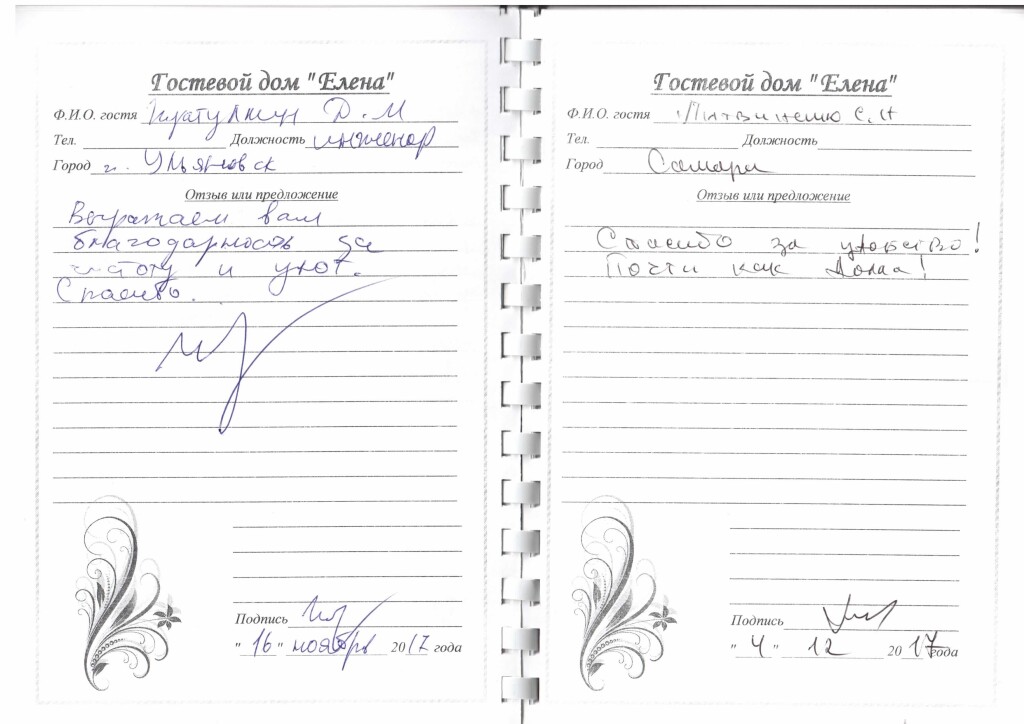 Гостевой дом "Елена"
Ф.И.О. гостя Д.М
Тел. Должность инженер
Город г. Ульяновск
Отзыв или предложение
Выражаем вам
благодарность за
чистоту и уют.
Спасибо.
Подпись
"16" ноябрь 2017 года
Гостевой дом "Елена"
Ф.И.О. гостя Литвиненко С.Н
Тел. Должность
Город Самара
Отзыв или предложение
Спасибо за удобство!
Почти как дома!
Подпись
"4" 12 2017 года